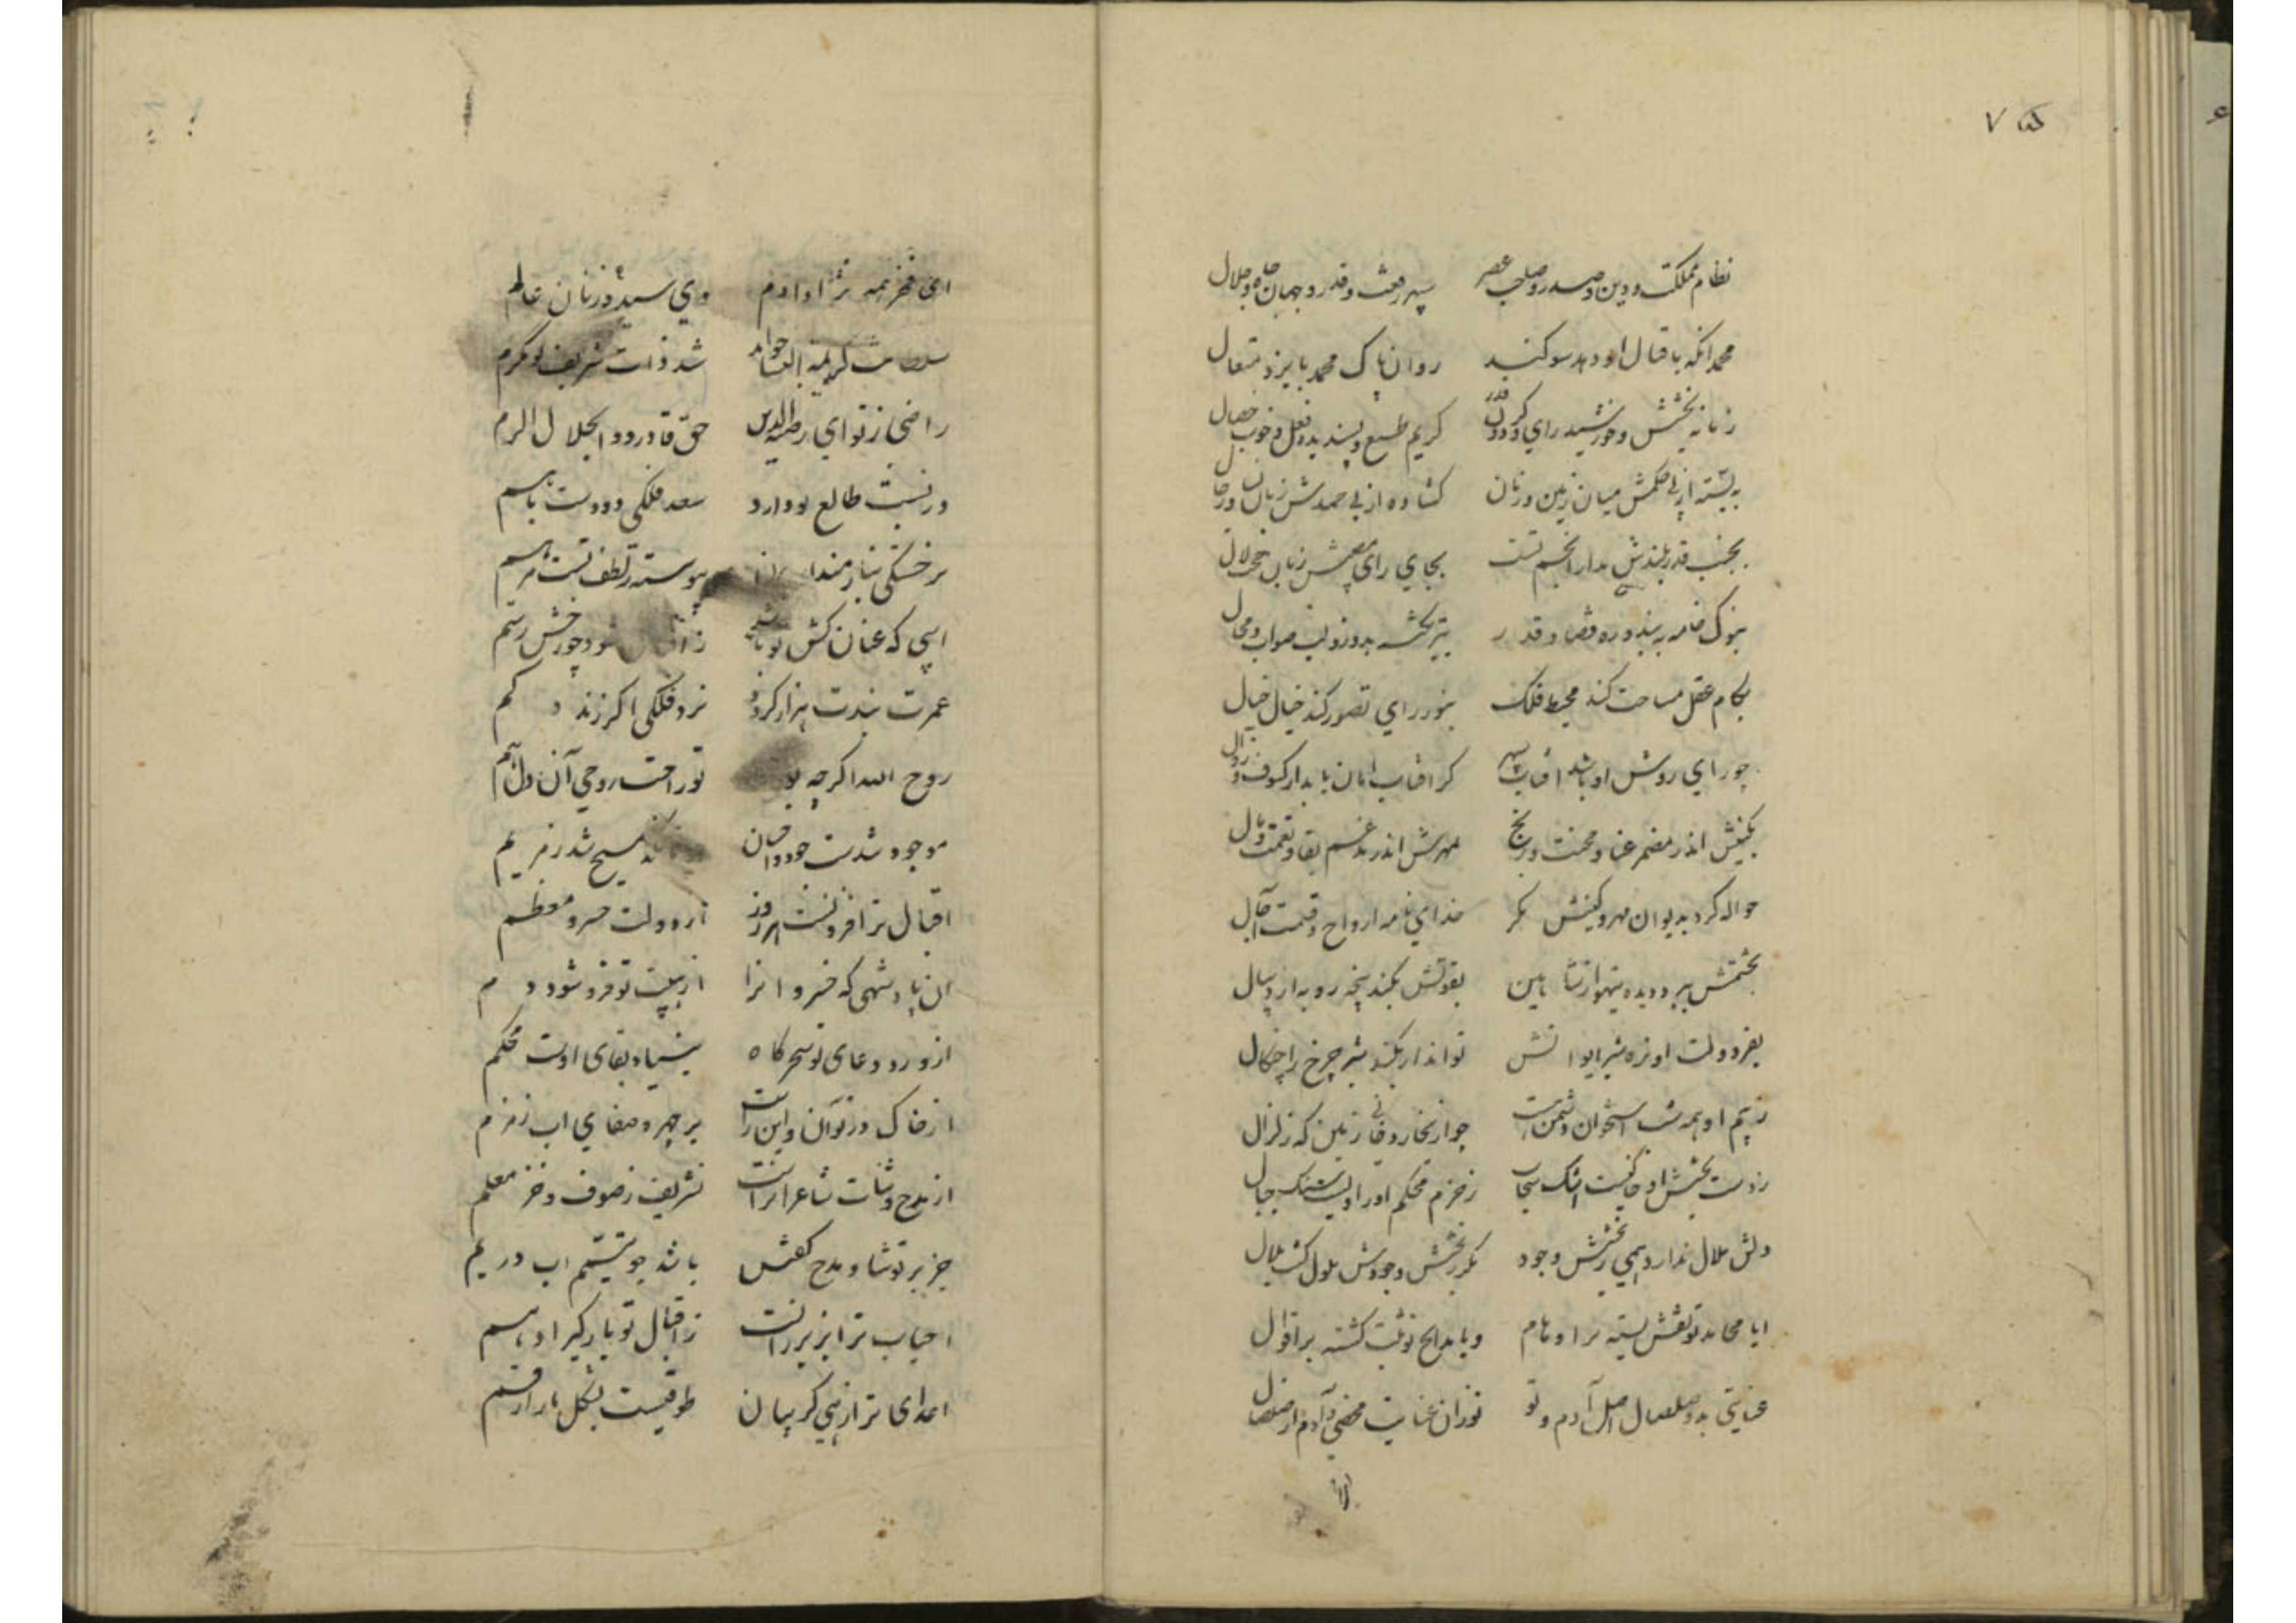 نظام مملکت و دین و صدر و صاحب عصر سپهر رفعت و قدر و جهان جاه و جلال
محمد آنکه باقبال او دهد سوکند روان پاک محمد بایزد متعال
زمانه بخشش و خورشید رای و کردون قدر کریم طبع و پسندیده فعل و خوب خصال
به بسته از پی حکمش میان زمین و زمان کشاده از پی حمدش زبان
بجنب قدر بلندش مدار انجم پست بجای رای مصیبش زبان حجت لال
بنوک خامه به بندد ره قضا و قدر بتیر بدوزد لب صواب و محال
بکام عقل مساحت کند محیط فلک بنور رای تصور کند خیال خیال
چو رای روشن او باشد افتاب سپهر کر افتاب امان یابد از کسوف و زوال
بکینش اندر مضمر عنا و محنت و رنج بمهرش اندر مدغم بقا و نعمت و مال
حواله کرد بدیوان مهر و کینش مکر خدای نامه ارواح و قسمت آجال
بخشمش ببرد دیده تیهو از شاهین بقوتش بکند پنجه روبه از ریبال
بفر دولت او نره شیر ایوانش تواند ار بکند شیر چرخ را چنکال
ز بیم او همه شب استخوان دشمن اوست چو از بخار دفاین زمین که زلزال
ز دست بخشش او خاکیست اشک سحاب ز حزم محکم او را دلیست سنک جبال
دلش ملال ندارد همی ز بخشش وجود مکر ز بخشش وجودش ملول کشت ملال
ایا محامد تو نقش بسته بر اوهام و یا مدایح تو ثبت کشته بر اقوال
عنایتی بد و صلصال اصل آدم و تو تو زان عنایت محضی و آدم از صلصال
ای فخر همه نژاد آدم وی سیده زنان عالم
شد ذات شریف تو مکرم
راضی ز تو ای رضیة الدین حق قادر ذو الجلال اکرم
در نسبت طالع تو دارد سعد فلکی دو دست باهم
بر خستکی نیازمندان پیوسته ز لطف تست مرهم
اسبی که عنان کش تو باشد شود چو رخش رستم
عمرت بندت هزار کردد نرد فلکی اکر زند کم
روح الله اکرچه بود تو راحت روحی آن دل هم
موجود شدت جود زان سان مسیح شد ز مریم
اقبال ترا فزونست هر روز از دولت خسرو معظم
آن پادشهی که خسروانرا از هیبت تو فرو شود دم
از ورد دعای تو سحرکاه بنیاد بقای اوست محکم
از خاک در تو آن و این راست بر چهره صفای اب زمزم
از مدح و ثنات شاعرانراست تشریف ز صوف و خز معلم
جز بر تو ثنا و مدح کفتن باشد چو تیمم اب در یم
احباب ترا بزیر رانست ز اقبال تو بارکیر ادهم
اعدای ترا ز پی کریبان طوقیست بشکل مار ارقم